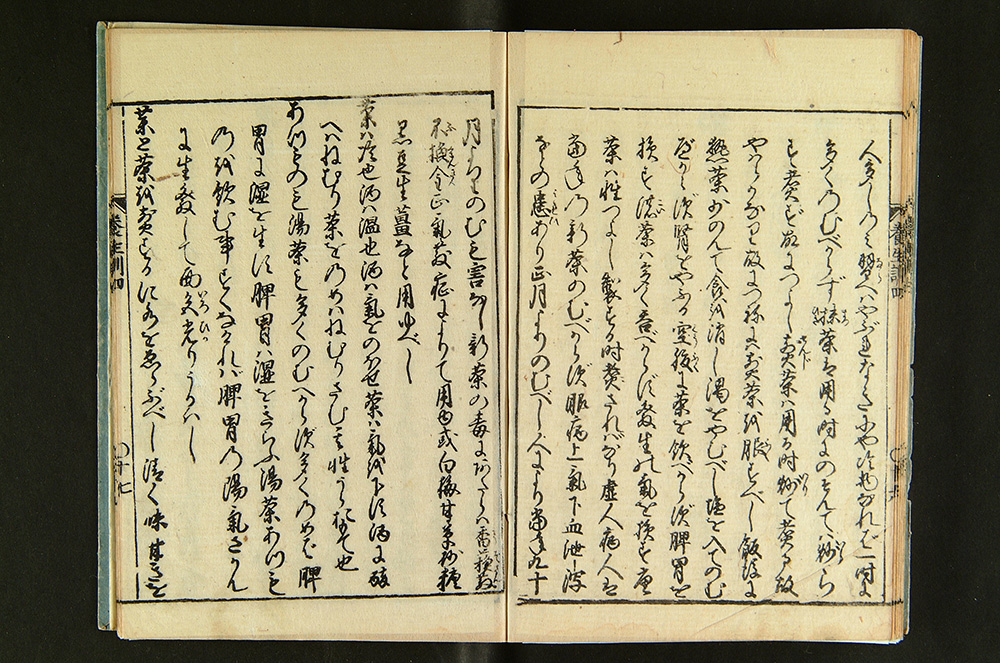 人多し乃ミ習へハやぶれなきにや冷物なれバ一時に
多くのむべからず抹茶は用る時にのぞんて八炒ら
ず煮ず故につよし煎茶ハ用る時炒て煮る故
やはらかなり故につねにハ煎茶を服すべし飯後に
熱茶少のんて食を消し渇をやむべし塩を入てのむ
べからず腎をやぶる空腹に茶を飲べからず脾胃を
損ず濃茶ハ多く呑べからず発生の気を損ず唐
茶ハ性つよし製する時煮ざれバなり虚人病人は
当年乃新茶のむべからず眼病上気下血泄瀉
などの患あり正月よりのむべし人により当年九十
月よりのむも害なし新茶の毒にあたらハ香蘇散
不換金正気散症によりて用ゆ或白梅甘草砂糖
黒豆生薑など用ゆべし
茶ハ冷也酒ハ温也酒ハ気をのぼせ茶ハ気を下す酒に酔
へハねむり茶をのめハねむりさむ其性うらおもて也
あつものも湯茶も多くのむべからず多くのめバ脾
胃に湿を生ず脾胃ハ湿をきらふ湯茶あつも
のを飲む事すくなけれバ脾胃乃陽気さかん
に生発して面色光りうるハし
薬と茶を煎ずるに水をゑらぶべし清く味甘きを
養生訓四
廿七